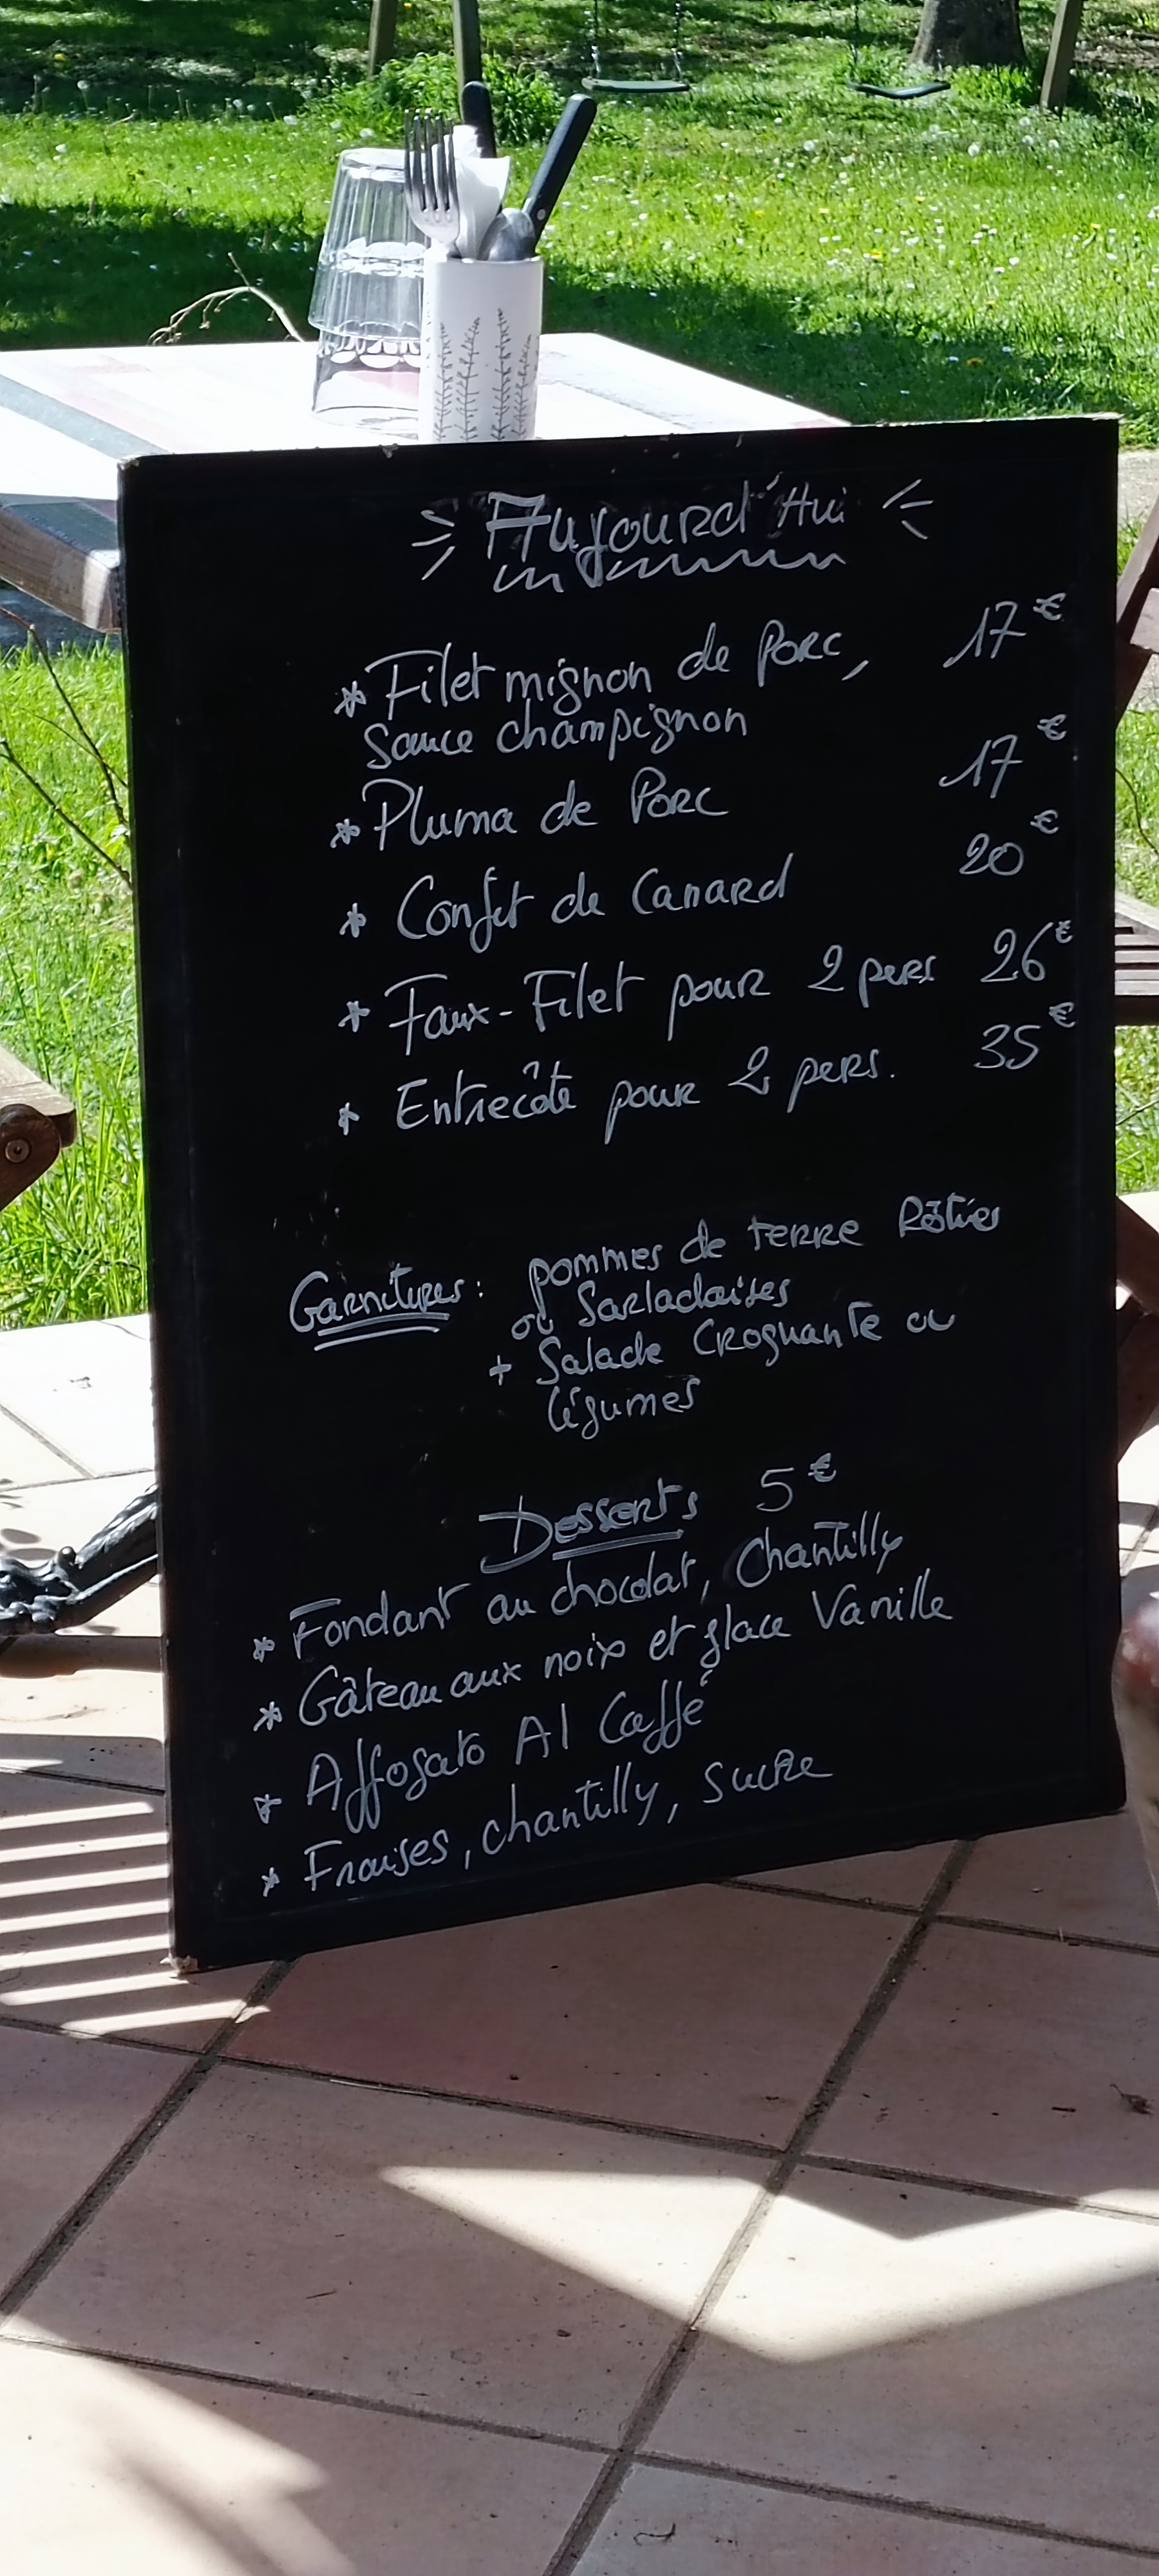 Aujourd'Hui
* Filet mignon de Porc, 17€
Sauce champignon
* Pluma de Porc 17€
* Confit de Canard 20€
* Faux-Filet pour 2 pers 26€
* Entrecôte pour 2 pers. 35€
Garnitures: pommes de terre Rôties
ou Sarladaises
+ Salade Croquante ou
légumes
Desserts 5€
* Fondant au chocolat, Chantilly
* Gâteau aux noix et glace Vanille
* Affogato Al Caffé
* Fraises, chantilly, sucre